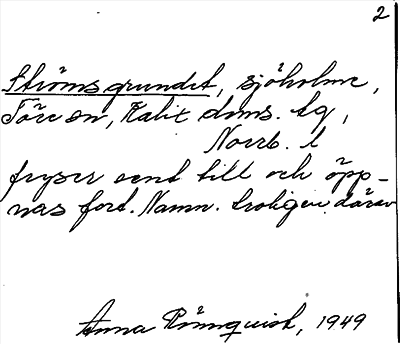 2
Strömsgrundet, sjöholme,
Töre sn, Kalix doms. tg,
Norrb. l
fryser sent till och öpp-
nas fort. Namn. troligen därav
Anna Rönnquist, 1949